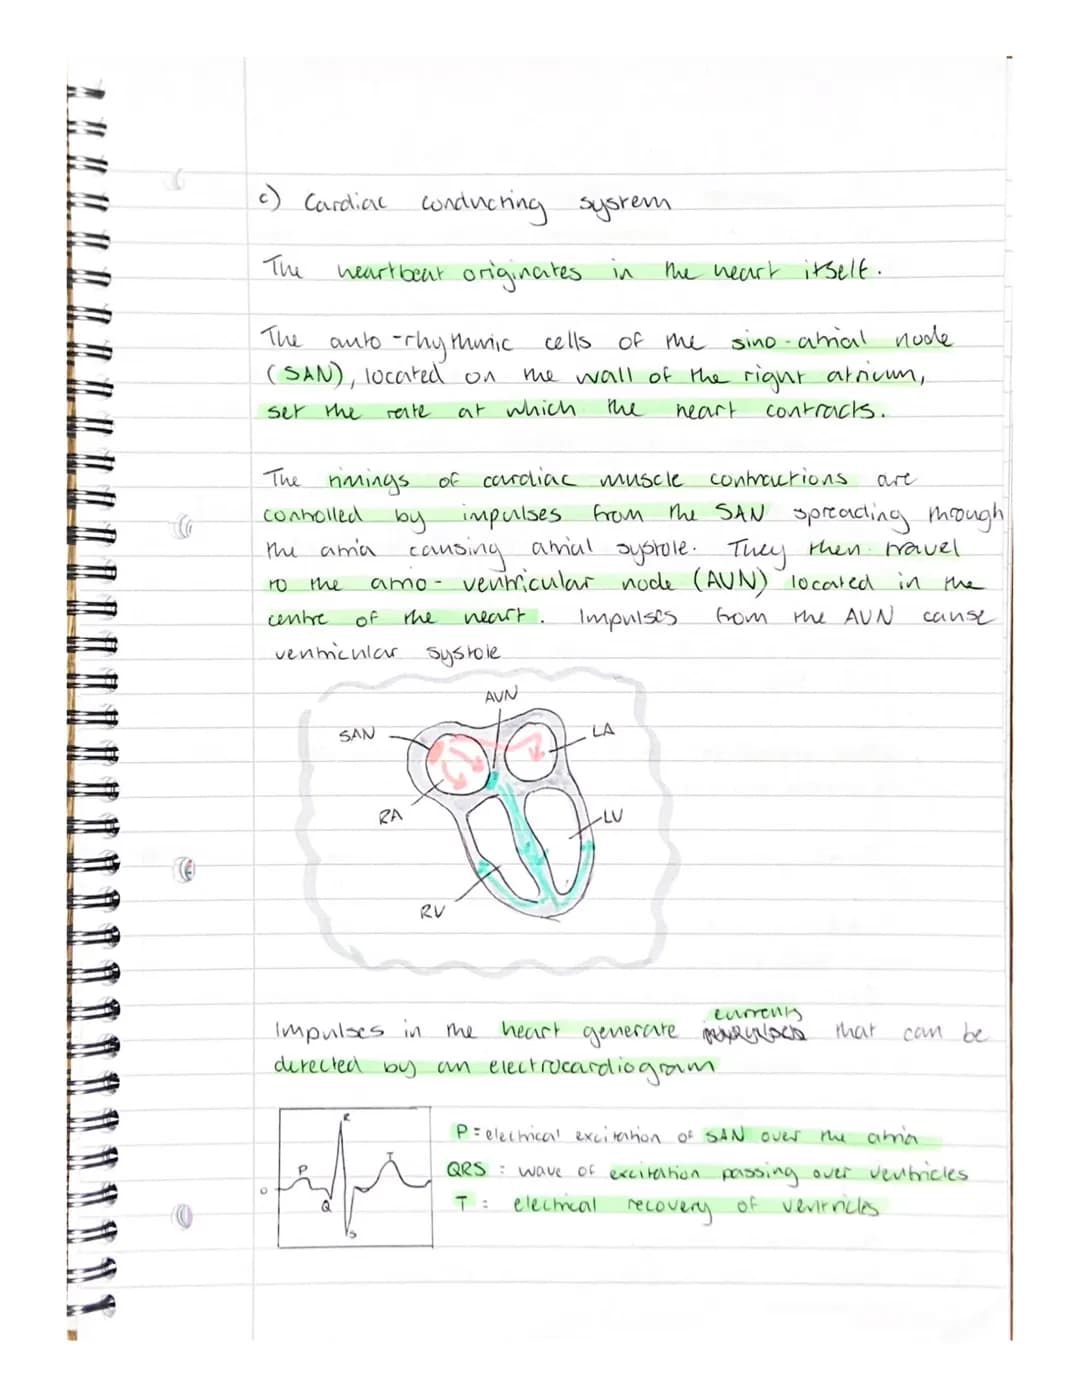 c) Cardiac conducting system
The heartbeat originates in the heart itself.
The auto-rhythmic cells of the sino-atrial node
(SAN), located on the wall of the right atrium,
set the rate at which the heart contracts.
The timings of cardiac muscle contractions are
controlled by impulses from the SAN spreading through
the atria causing atrial systole. They then travel
to the atrio-ventricular node (AVN) located in the
centre of the heart. Impulses from the AVN cause
ventricular systole
AVN
SAN
LA
RA
LV
RV
currents
Impulses in the heart generate that can be
detected by an electrocardiogram
R
P
T
Q
S
o
P = electrical excitation of SAN over the atria
QRS : wave of excitation passing over ventricles
T : electrical recovery of ventricles